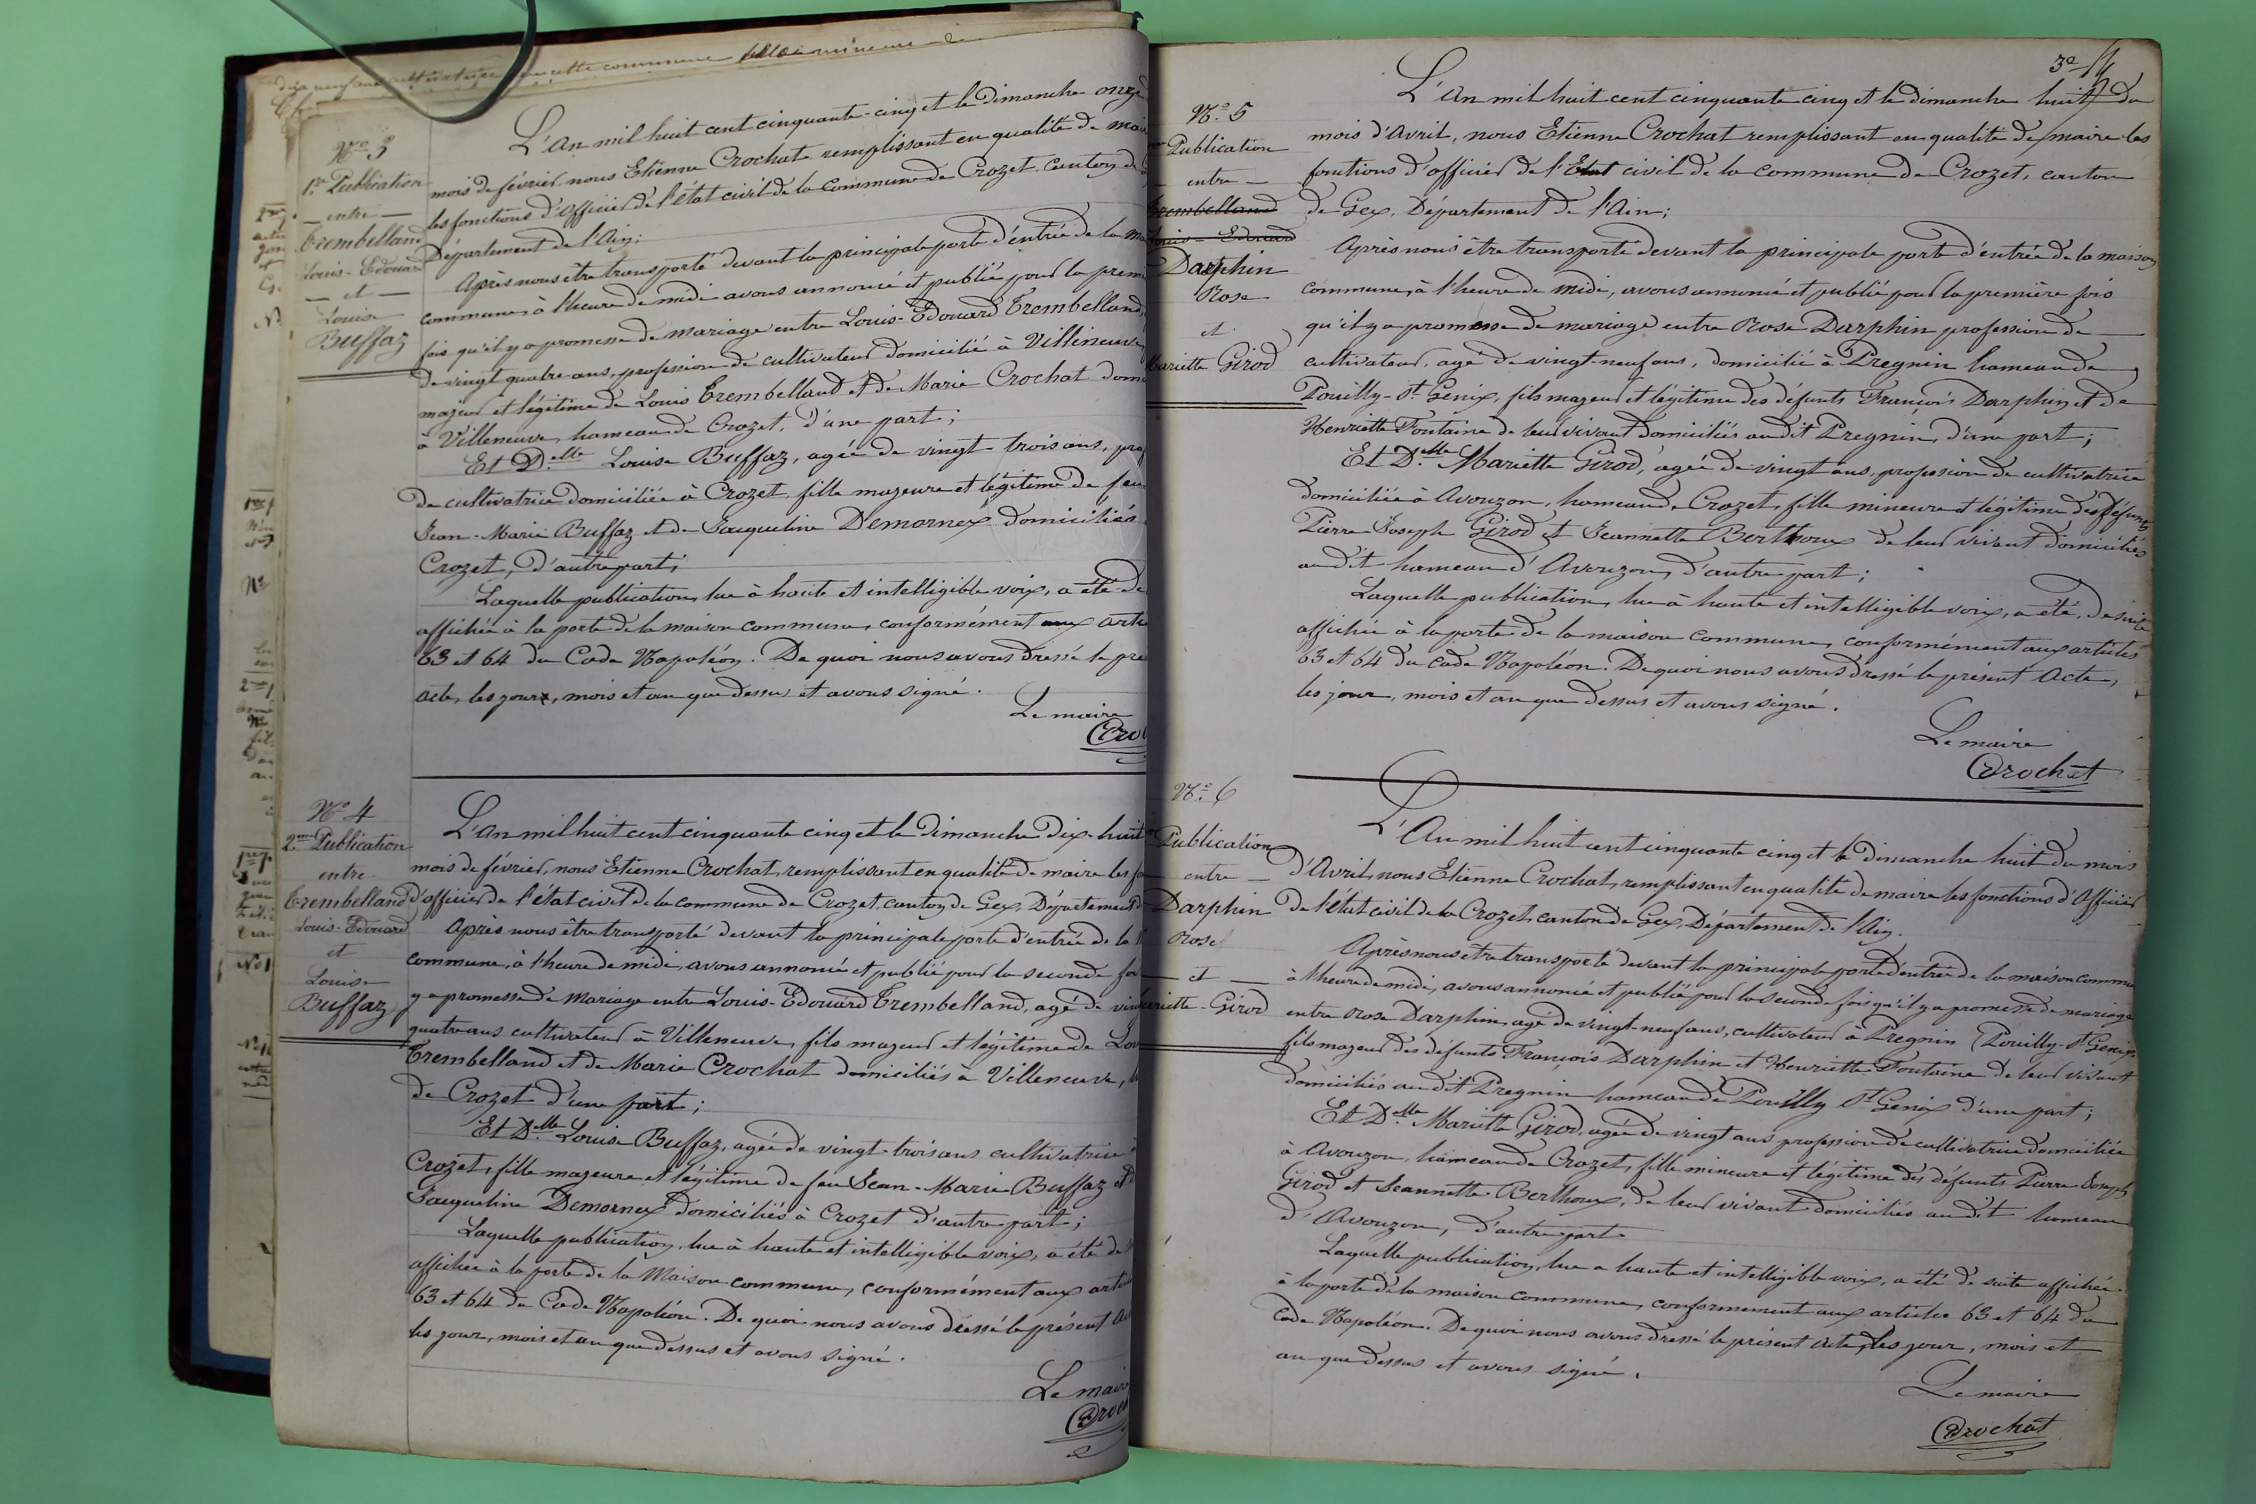 N.o 3
1.re Publication
— entre —
Trembelland
Louis-Edouard
— et —
Louise
Buffaz
L'An mil huit cent cinquante-cinq et le dimanche onze
mois de février, nous Etienne Crochat remplissant en qualité de mai
les fonctions d'officier de l'état civil de la commune de Crozet, canton de
Département de l'Ain;
Après nous être transporté devant la principale porte d'entrée de la ma
commune, à l'heure de midi avons annoncé et publié pour la prem
fois qu'il y a promesse de mariage entre Louis-Edouard Trembelland,
de vingt quatre ans, profession de cultivateur domicilié à Villeneuve
majeur et légitime de Louis Trembelland et de Marie Crochat dom
à Villeneuve, hameau de Crozet, d'une part;
Et D.elle Louise Buffaz, agée de vingt-trois ans, prof
de cultivatrice domiciliée à Crozet, fille majeure et légitime de feu
Jean-Marie Buffaz et de Jacqueline Demornex domiciliés
Crozet, d'autre part;
Laquelle publication, lue à haute et intelligible voix, a été de
affichée à la porte de la maison commune, conformément aux arti
63 et 64 du Code Napoléon. De quoi nous avons dressé le pré
acte, les jour, mois et an que dessus et avons signé.
Le maire
Cro
N.o 4
2.me Publication
entre
Trembelland
Louis-Edouard
et
Louise
Buffaz
L'An mil huit cent cinquante cinq et le dimanche dix-huit
mois de février, nous Etienne Crochat, remplissant en qualité de maire les fo
d'officier de l'état civil de la commune de Crozet, canton de Gex, Département d
Après nous être transporté devant la principale porte d'entrée de la
commune, à l'heure de midi, avons annoncé et publié pour la seconde foi
y a promesse de mariage entre Louis-Edouard Trembelland, agé de vin
quatre ans cultivateur à Villeneuve, fils majeur et légitime de Lou
Trembelland et de Marie Crochat domiciliés à Villeneuve,
de Crozet d'une part;
Et D.elle Louise Buffaz, agée de vingt-trois ans cultivatrice
Crozet, fille majeure et légitime de feu Jean-Marie Buffaz et d
Jacqueline Demornex domiciliés à Crozet d'autre part;
Laquelle publication, lue à haute et intelligible voix, a été de
affichée à la porte de la Maison commune, conformément aux arti
63 et 64 du Code Napoléon. De quoi nous avons dressé le présent A
les jour, mois et an que dessus et avons signé.
Le mair
Croch
N.o 5
Publication
— entre —
Trembelland
Louis-Edouard
Darphin
Rose
et
Mariette Girod
L'An mil huit cent cinquante cinq et le dimanche huit du
mois d'avril, nous Etienne Crochat remplissant en qualité de maire les
fonctions d'officier de l'Etat civil de la commune de Crozet, canton
de Gex, Département de l'Ain;
Après nous être transporté devant la principale porte d'entrée de la maison
commune, à l'heure de midi, avons annoncé et publié pour la première fois
qu'il y a promesse de mariage entre Rose Darphin profession de
cultivateur, agé de vingt-neuf ans, domicilié à Pregnin hameau de
Pouilly-St Genix, fils majeur et légitime des défunts François Darphin et de
Henriette Fontaine de leur vivant domiciliés au dit Pregnin, d'une part;
Et D.elle Mariette Girod, agée de vingt ans, profession de cultivatrice
domiciliée à Avouzon, hameau de Crozet, fille mineure et légitime des défunts
Pierre Joseph Girod et Jeannette Berthoux de leur vivant domiciliés
au dit hameau d'Avouzon, d'autre part;
Laquelle publication, lue à haute et intelligible voix, a été, de suite
affichée à la porte de la maison commune, conformément aux articles
63 et 64 du code Napoléon. De quoi nous avons dressé le présent Acte,
les jour, mois et an que dessus et avons signé.
Le maire
Crochat
N.o 6
Publication
— entre —
Darphin
Rose
— et —
Mariette-Girod
L'An mil huit cent cinquante cinq et le dimanche huit du mois
d'Avril, nous Etienne Crochat, remplissant en qualité de maire les fonctions d'Officier
de l'état civil de la Crozet, canton de Gex, Département de l'Ain.
Après nous être transporté devant la principale porte d'entrée de la maison commu
à l'heure de midi, avons annoncé et publié pour la seconde fois qu'il y a promesse de mariage
entre Rose Darphin, agé de vingt-neuf ans, cultivateur à Pregnin (Pouilly-St Genix
fils majeur des défunts François Darphin et Henriette Fontaine de leur vivant
domiciliés au dit Pregnin hameau de Pouilly St Genix d'une part;
Et D.elle Mariette Girod, agée de vingt ans profession de cultivatrice domiciliée
à Avouzon, hameau de Crozet, fille mineure et légitime des défunts Pierre Joseph
Girod et Jeannette Berthoux, de leur vivant domiciliés au dit hameau
d'Avouzon, d'autre part.
Laquelle publication, lue a haute et intelligible voix, a été de suite affichée
à la porte de la maison commune, conformement aux articles 63 et 64 du
Code Napoléon. De quoi nous avons dressé le présent acte, les jour, mois et
an que dessus et avons signé.
Le maire
Crochat